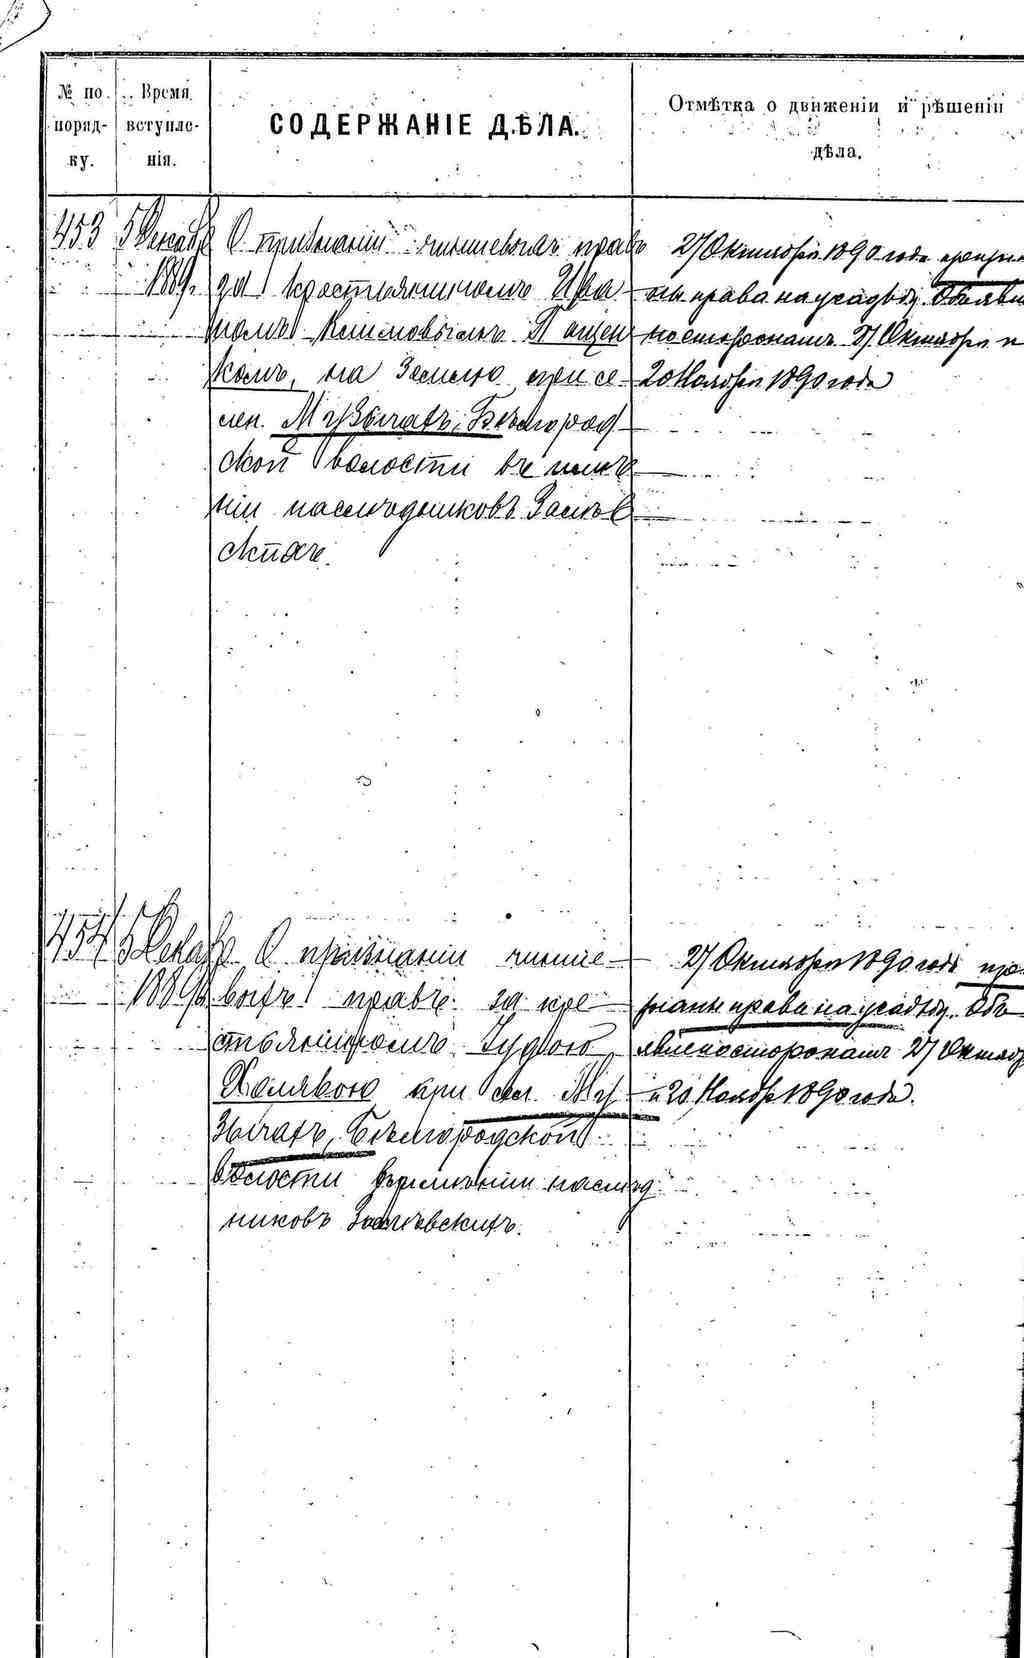 № по
поряд-
ку.
Время
вступле-
нія.
СОДЕРЖАНІЕ ДѢЛА.
Отмѣтка о движеніи и рѣшеніи
дѣла.
453
5 Декабр
1889.
О признаніи чиншевыхъ правъ
за крестьяниномъ Ива
номъ Климовымъ Пащен
комъ, на землю при се-
лен. Музычахъ, Бѣлгород-
ской волости въ имѣ
ніи наслѣдниковъ Залѣв
скихъ.
27 Октября 1890 года призна
ны права на усадьбу. Объявле
но сторонамъ 27 Октября и
20 Ноября 1890 года
454
5 Декабр
1889
О признаніи чинше-
выхъ правъ за кре
стьяниномъ
Холявою при сел. Му
зычахъ, Бѣлгородской
волости въ имѣніи наслѣд
никовъ Залѣвскихъ.
27 Октября 1890 года при
знаны права на усадьбу. Объ
явлено сторонамъ 27 Октяб
и 20 Ноябр 1890 года.